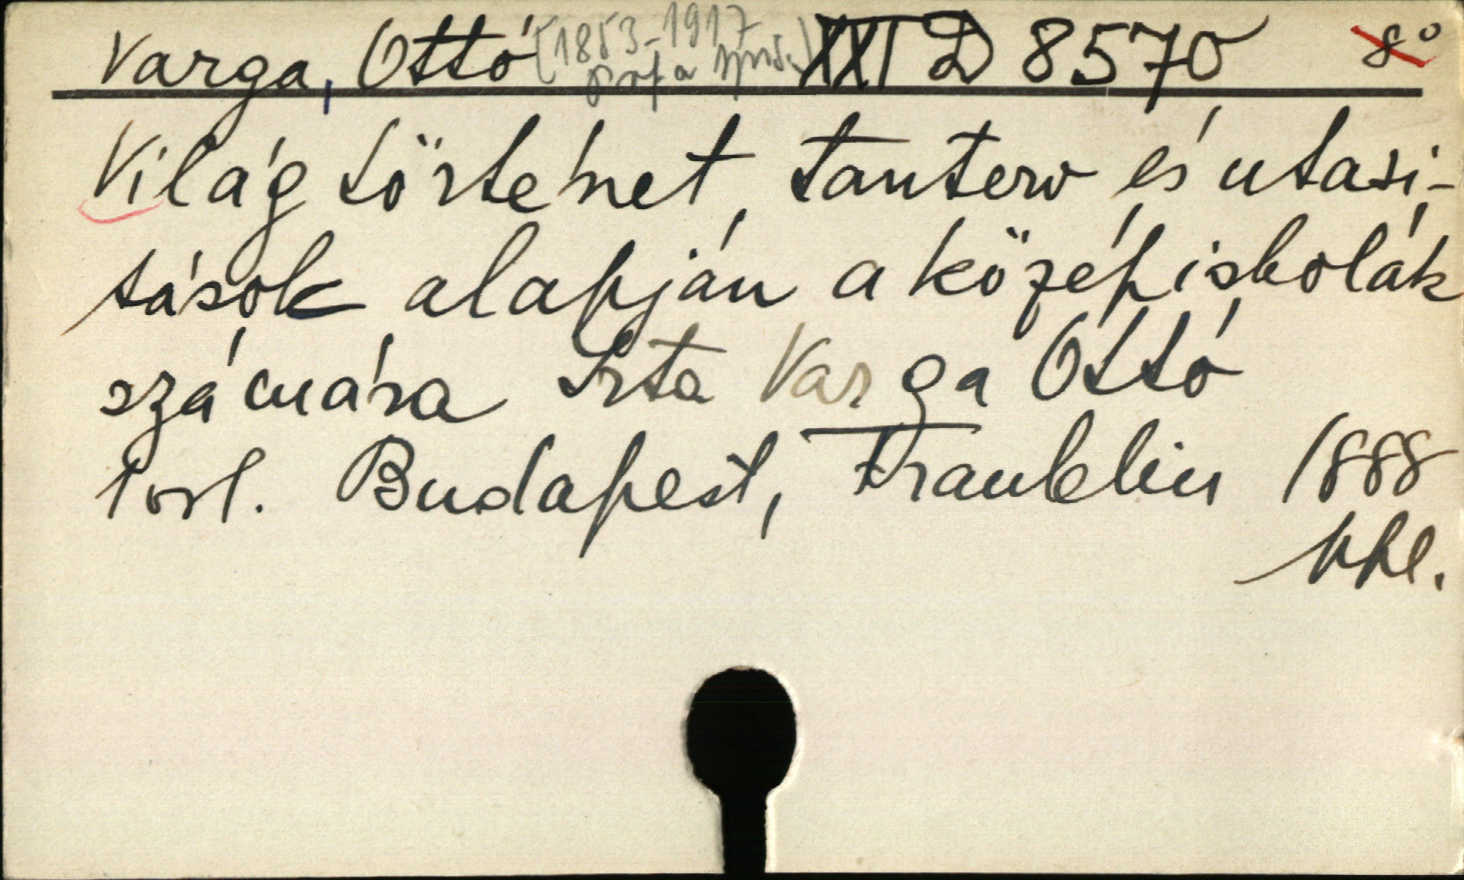 Varga, Ottó (1853-1917 XXI D 8570 8°
Világtörténet, tanterv és utasi-
tások alapján a középiskolák
számára Irta Varga Ottó
Budapest, Franklin 1888